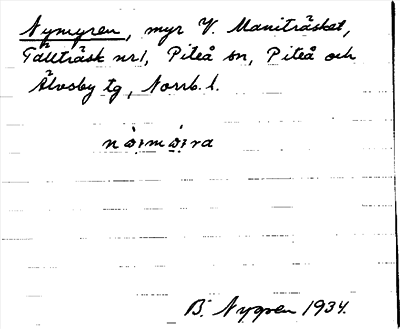 Nymyren, myr V. Maniträsket,
Tällträsk nr 1, Piteå sn, Piteå och
Älvsby tg, Norrb. l.
B. Nygren 1934.